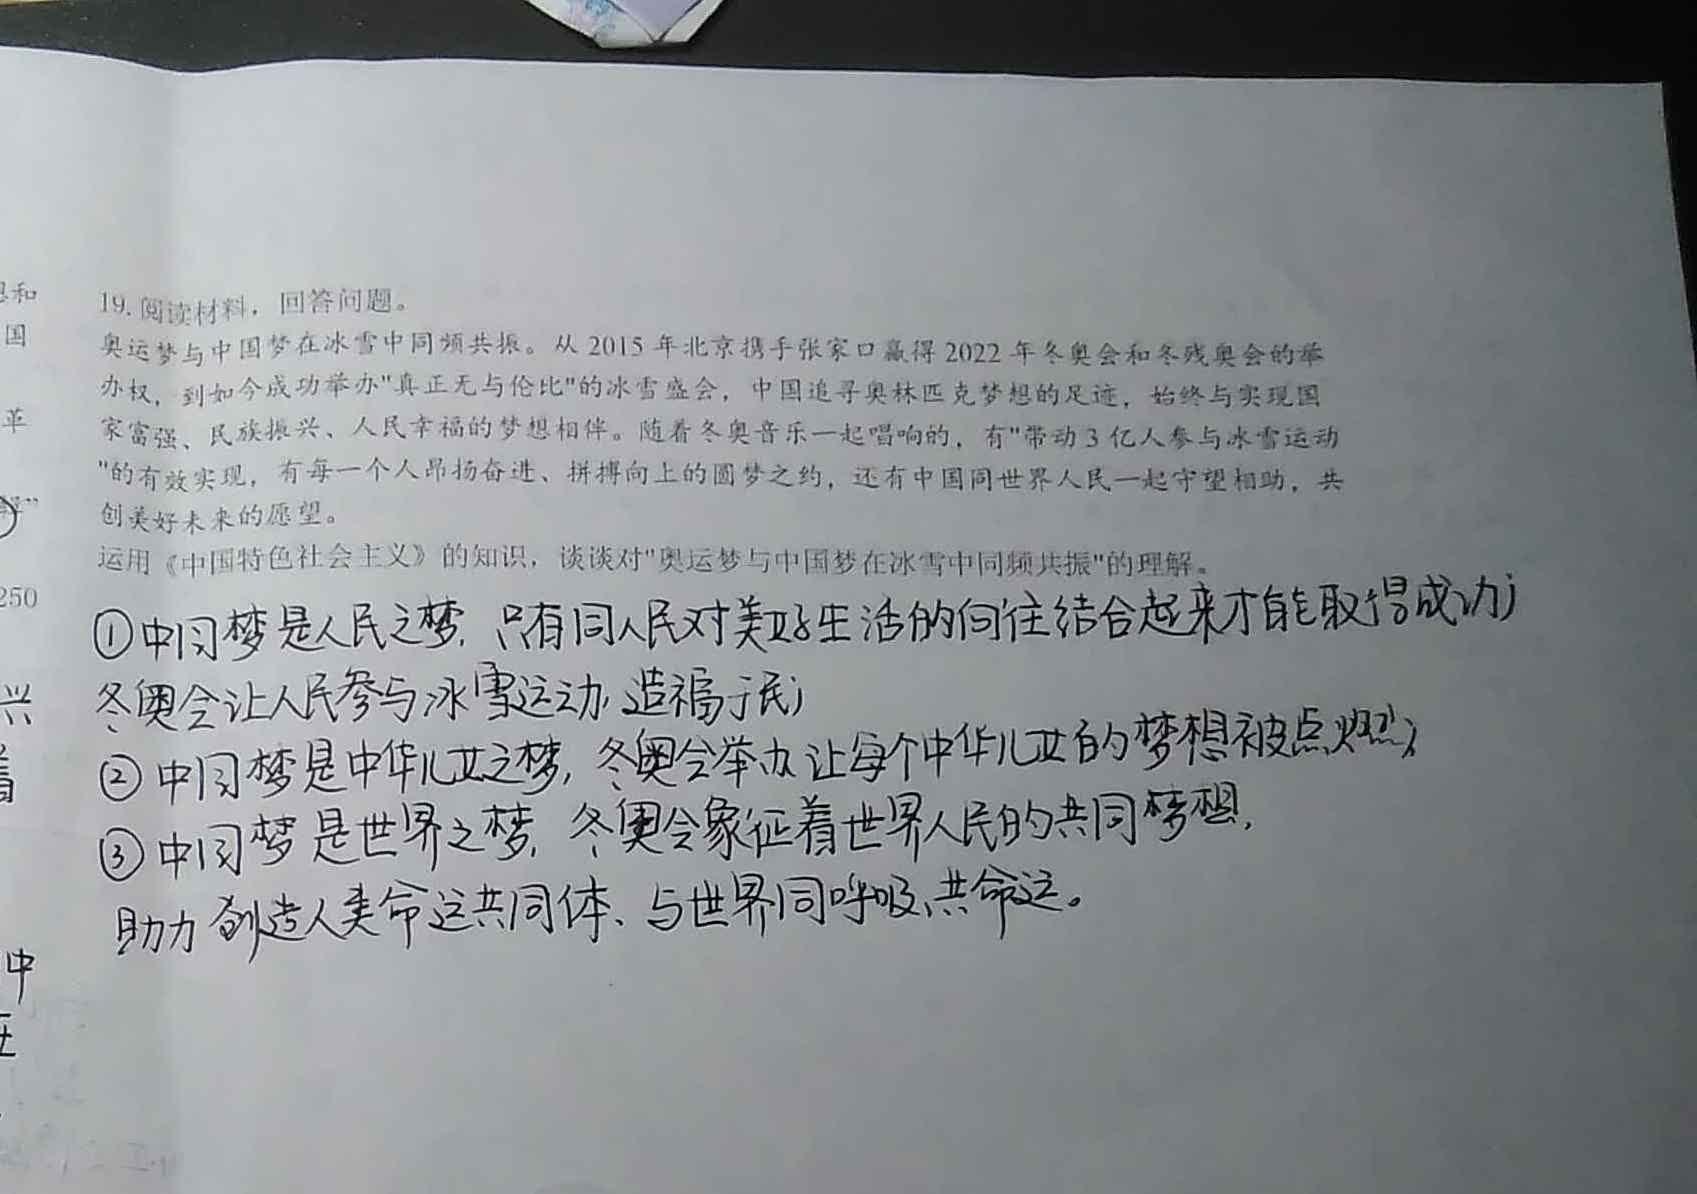 和
国
革
250
兴
着
中
19. 阅读材料，回答问题。
奥运梦与中国梦在冰雪中同频共振。从 2015 年北京携手张家口赢得 2022 年冬奥会和冬残奥会的举
办权，到如今成功举办"真正无与伦比"的冰雪盛会，中国追寻奥林匹克梦想的足迹，始终与实现国
家富强、民族振兴、人民幸福的梦想相伴。随着冬奥音乐一起唱响的，有"带动 3 亿人参与冰雪运动
"的有效实现，有每一个人昂扬奋进、拼搏向上的圆梦之约，还有中国同世界人民一起守望相助，共
创美好未来的愿望。
运用《中国特色社会主义》的知识，谈谈对"奥运梦与中国梦在冰雪中同频共振"的理解。
①中国梦是人民之梦，只有同人民对美好生活的向往结合起来才能取得成功；
冬奥会让人民参与冰雪运动，造福于民；
②中国梦是中华儿女之梦，冬奥会举办让每个中华儿女的梦想被点燃；
③中国梦是世界之梦，冬奥会象征着世界人民的共同梦想，
助力创造人类命运共同体、与世界同呼吸、共命运。